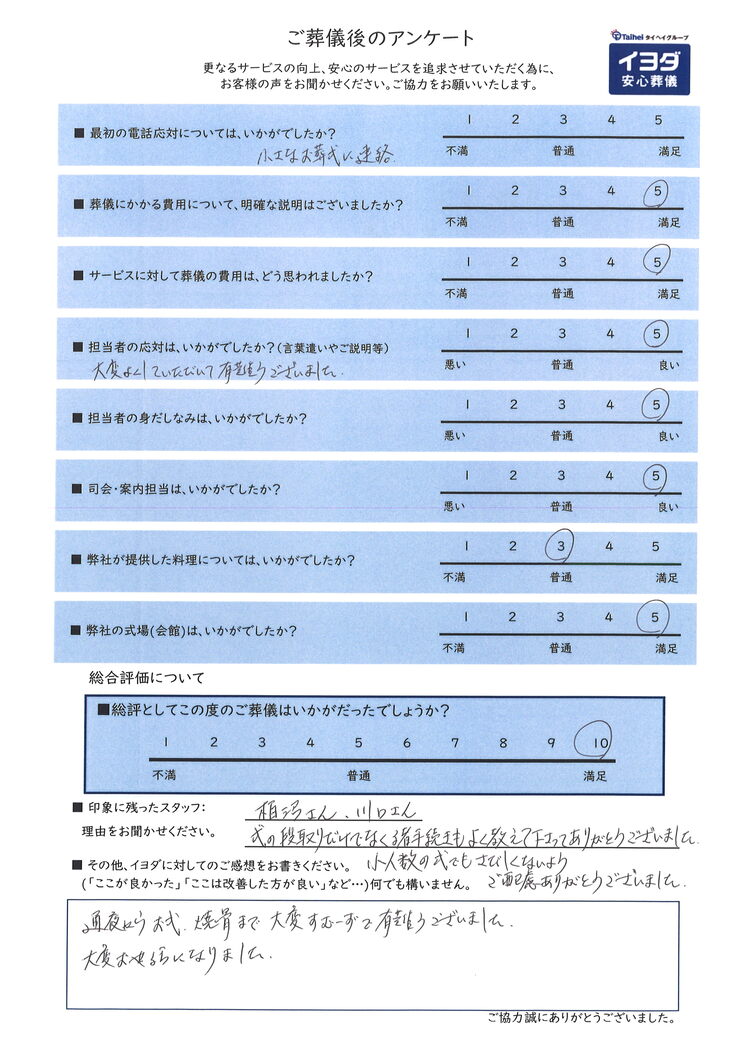 ご葬儀後のアンケート
Taihei タイヘイグループ
イヨダ
安心葬儀
更なるサービスの向上、安心のサービスを追求させていただく為に、
お客様の声をお聞かせください。ご協力をお願いいたします。
■ 最初の電話応対については、いかがでしたか?
1 2 3 4 5
不満 普通 満足
小さなお葬式に連絡
■ 葬儀にかかる費用について、明確な説明はございましたか?
1 2 3 4 5
不満 普通 満足
■ サービスに対して葬儀の費用は、どう思われましたか?
1 2 3 4 5
不満 普通 満足
■ 担当者の応対は、いかがでしたか?(言葉遣いやご説明等)
1 2 3 4 5
悪い 普通 良い
大変よくしていただいて有難うございました.
■ 担当者の身だしなみは、いかがでしたか?
1 2 3 4 5
悪い 普通 良い
■ 司会・案内担当は、いかがでしたか?
1 2 3 4 5
悪い 普通 良い
■ 弊社が提供した料理については、いかがでしたか?
1 2 3 4 5
不満 普通 満足
■ 弊社の式場(会館)は、いかがでしたか?
1 2 3 4 5
不満 普通 満足
総合評価について
■総評としてこの度のご葬儀はいかがだったでしょうか?
1 2 3 4 5 6 7 8 9 10
不満 普通 満足
■ 印象に残ったスタッフ:
さん、川口さん
理由をお聞かせください。
式の段取りだけでなく各手続きもよく教えて下さってありがとうございました.
■ その他、イヨダに対してのご感想をお書きください。
小人数の式でもさびしくないよう
(「ここが良かった」「ここは改善した方が良い」など…)何でも構いません。
ご配慮ありがとうございました.
通夜からお式、焼骨まで大変すむーずで有難うございました.
大変お世話になりました.
ご協力誠にありがとうございました。